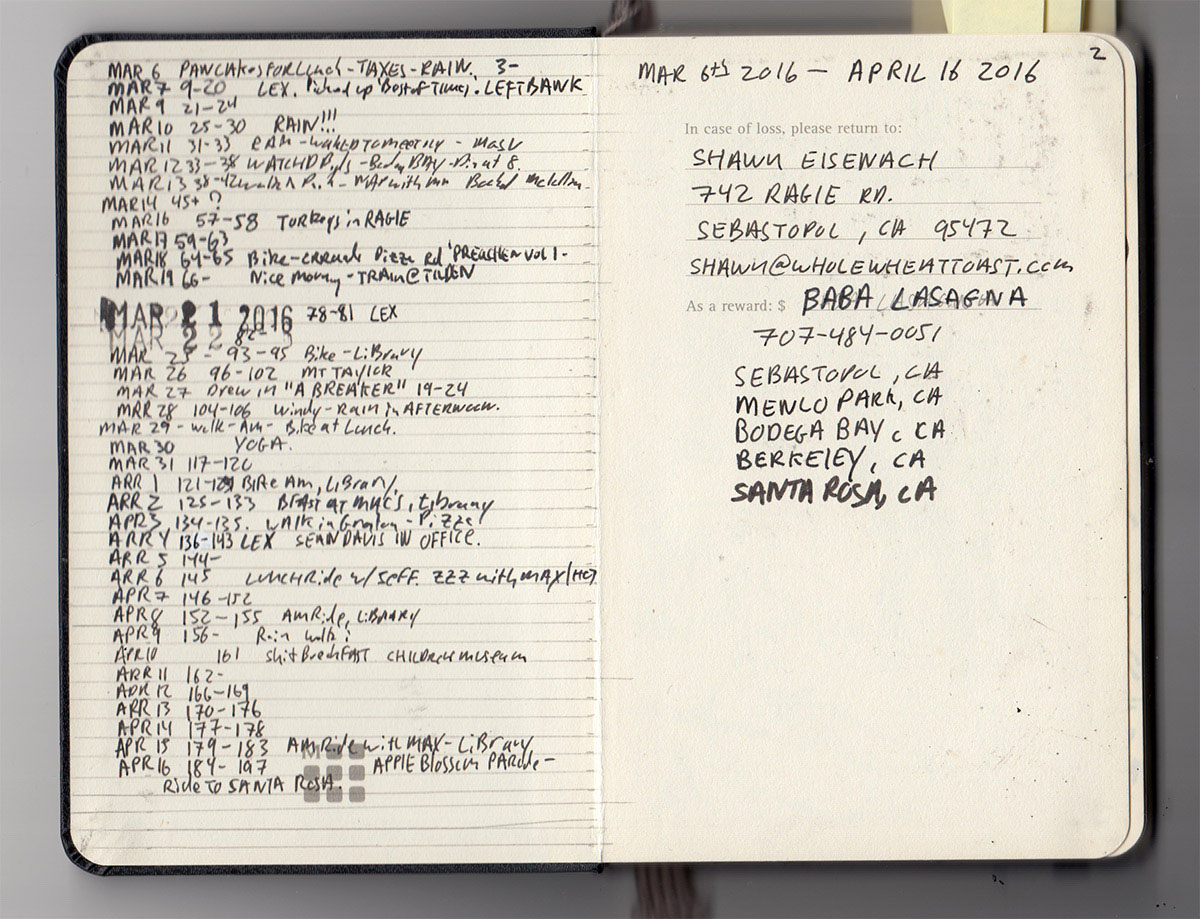 MAR 6 PANCAKES FOR Lunch - TAXES - RAIN. 3-
MAR 7 9-20 LEX. Picked up 'Best of Times'. LEFT BANK
MAR 9 21-24
MAR 10 25-30 RAIN!!!
MAR 11 31-33
MAR 12 33-38 WATCHD
MAR 13 38-42 with
MAR 14 45+ ?
MAR 16 57-58 TURKeys in RAGIE
MAR 17 59-63
MAR 18 64-65 Bike - Pizza 'PREACHER VOL 1-
MAR 19 66- Nice - TRAIN @ TILDEN
MAR 21 2016 78-81 LEX
MAR 22 82-
MAR 25 - 93-95 Bike-LiBrary
MAR 26 96-102 MT TAYLOR
MAR 27 Drew in "A BREAKER" 19-24
MAR 28 104-106 Windy-Rain in AFTERNOON.
MAR 29 - walk-Am- Bike at Lunch.
MAR 30 YOGA.
MAR 31 117-120
APR 1 121- BIKe Am, LiBrary,
APR 2 125-133 AT Library
APR 3 134-135. walk in Graton - Pizza
APR 4 136-143 LEX SEAN DAVIS IN OFFICE.
APR 5 144-
APR 6 145 LUNCH Ride w/ Jeff. ZZZ with MAX/
APR 7 146-152
APR 8 152-155 Am Ride, LiBRARY
APR 9 156- Rain walk
APR 10 161 BreakFAST CHILDREN museum
APR 11 162-
APR 12 166-169
APR 13 170-176
APR 14 177-178
APR 15 179-183 Am Ride with MAX - LiBrary
APR 16 184-197 APPLE Blossom PARade -
Ride TO SANTA ROSA.
2
MAR 6th 2016 — APRIL 16 2016
In case of loss, please return to:
SHAWN EISENACH
742 RAGLE RD.
SEBASTOPOL, CA 95472
SHAWN@WHOLEWHEATTOAST.com
As a reward: $ BABA LASAGNA
707-484-0051
SEBASTOPOL, CA
MENLO PARK, CA
BODEGA BAY, CA
BERKELEY, CA
SANTA ROSA, CA